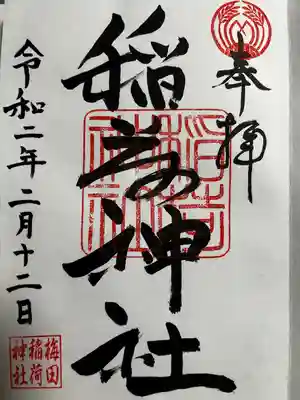 奉拝
稲荷神社
稲荷神社
令和二年二月十二日
梅田
稲荷
神社